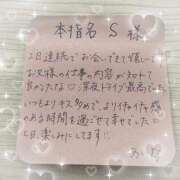 本指名 S 様
2日連続でお会いできて嬉しい
お兄様のイ仕事の内容が知れて
良かったな♡深夜ドライブ最高でした
いつもよりキス多めで、よりイチャイチャ感
のある時間を過ごせて幸せでした
七日、楽しみにしてます!!